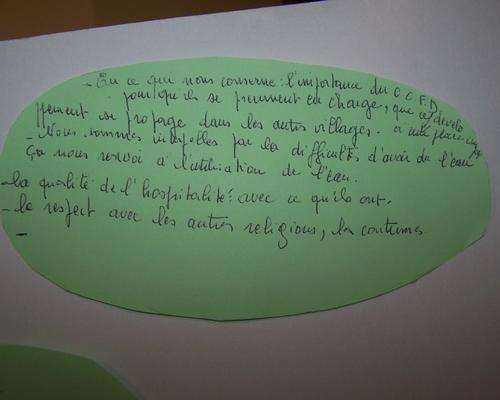 - En ce qui nous conserne : l'importance du C.C.F.D.
pour qu'ils se prennent en charge, que ce dévelo
ppement se propage dans les autres villages. a une place
- Nous sommes interpellés par la difficultés d'avoir de l'eau
Ça nous renvoi à l'utilisation de l'eau.
- la qualité de l'hospitalité : avec ce qu'ils ont.
- le respect avec les autres religions, les coutumes.
-